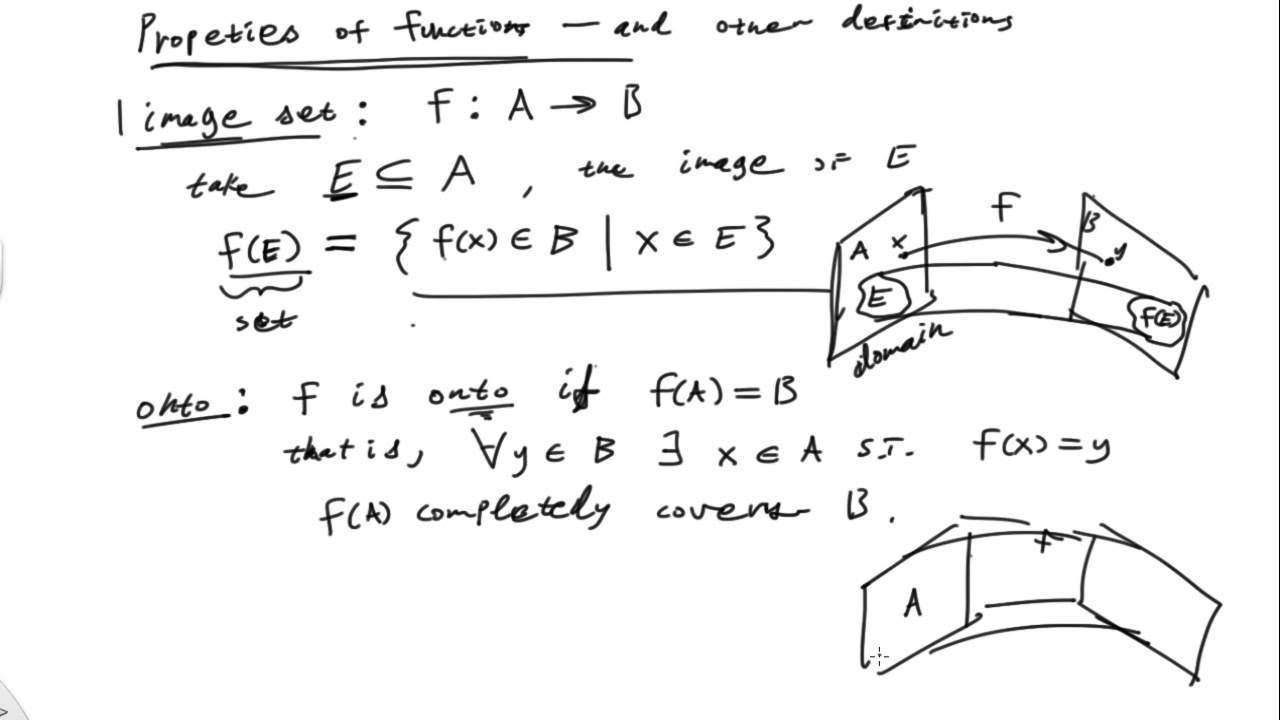 Propeties of functions — and other definitions
1 image set : f : A → B
take E ⊆ A , the image of E
f(E) = { f(x) ∈ B | x ∈ E }
set
f
A x
B y
E
f(E)
domain
onto : f is onto if f(A) = B
that is, ∀y ∈ B ∃ x ∈ A s.t. f(x) = y
f(A) completely covers B .
f
A